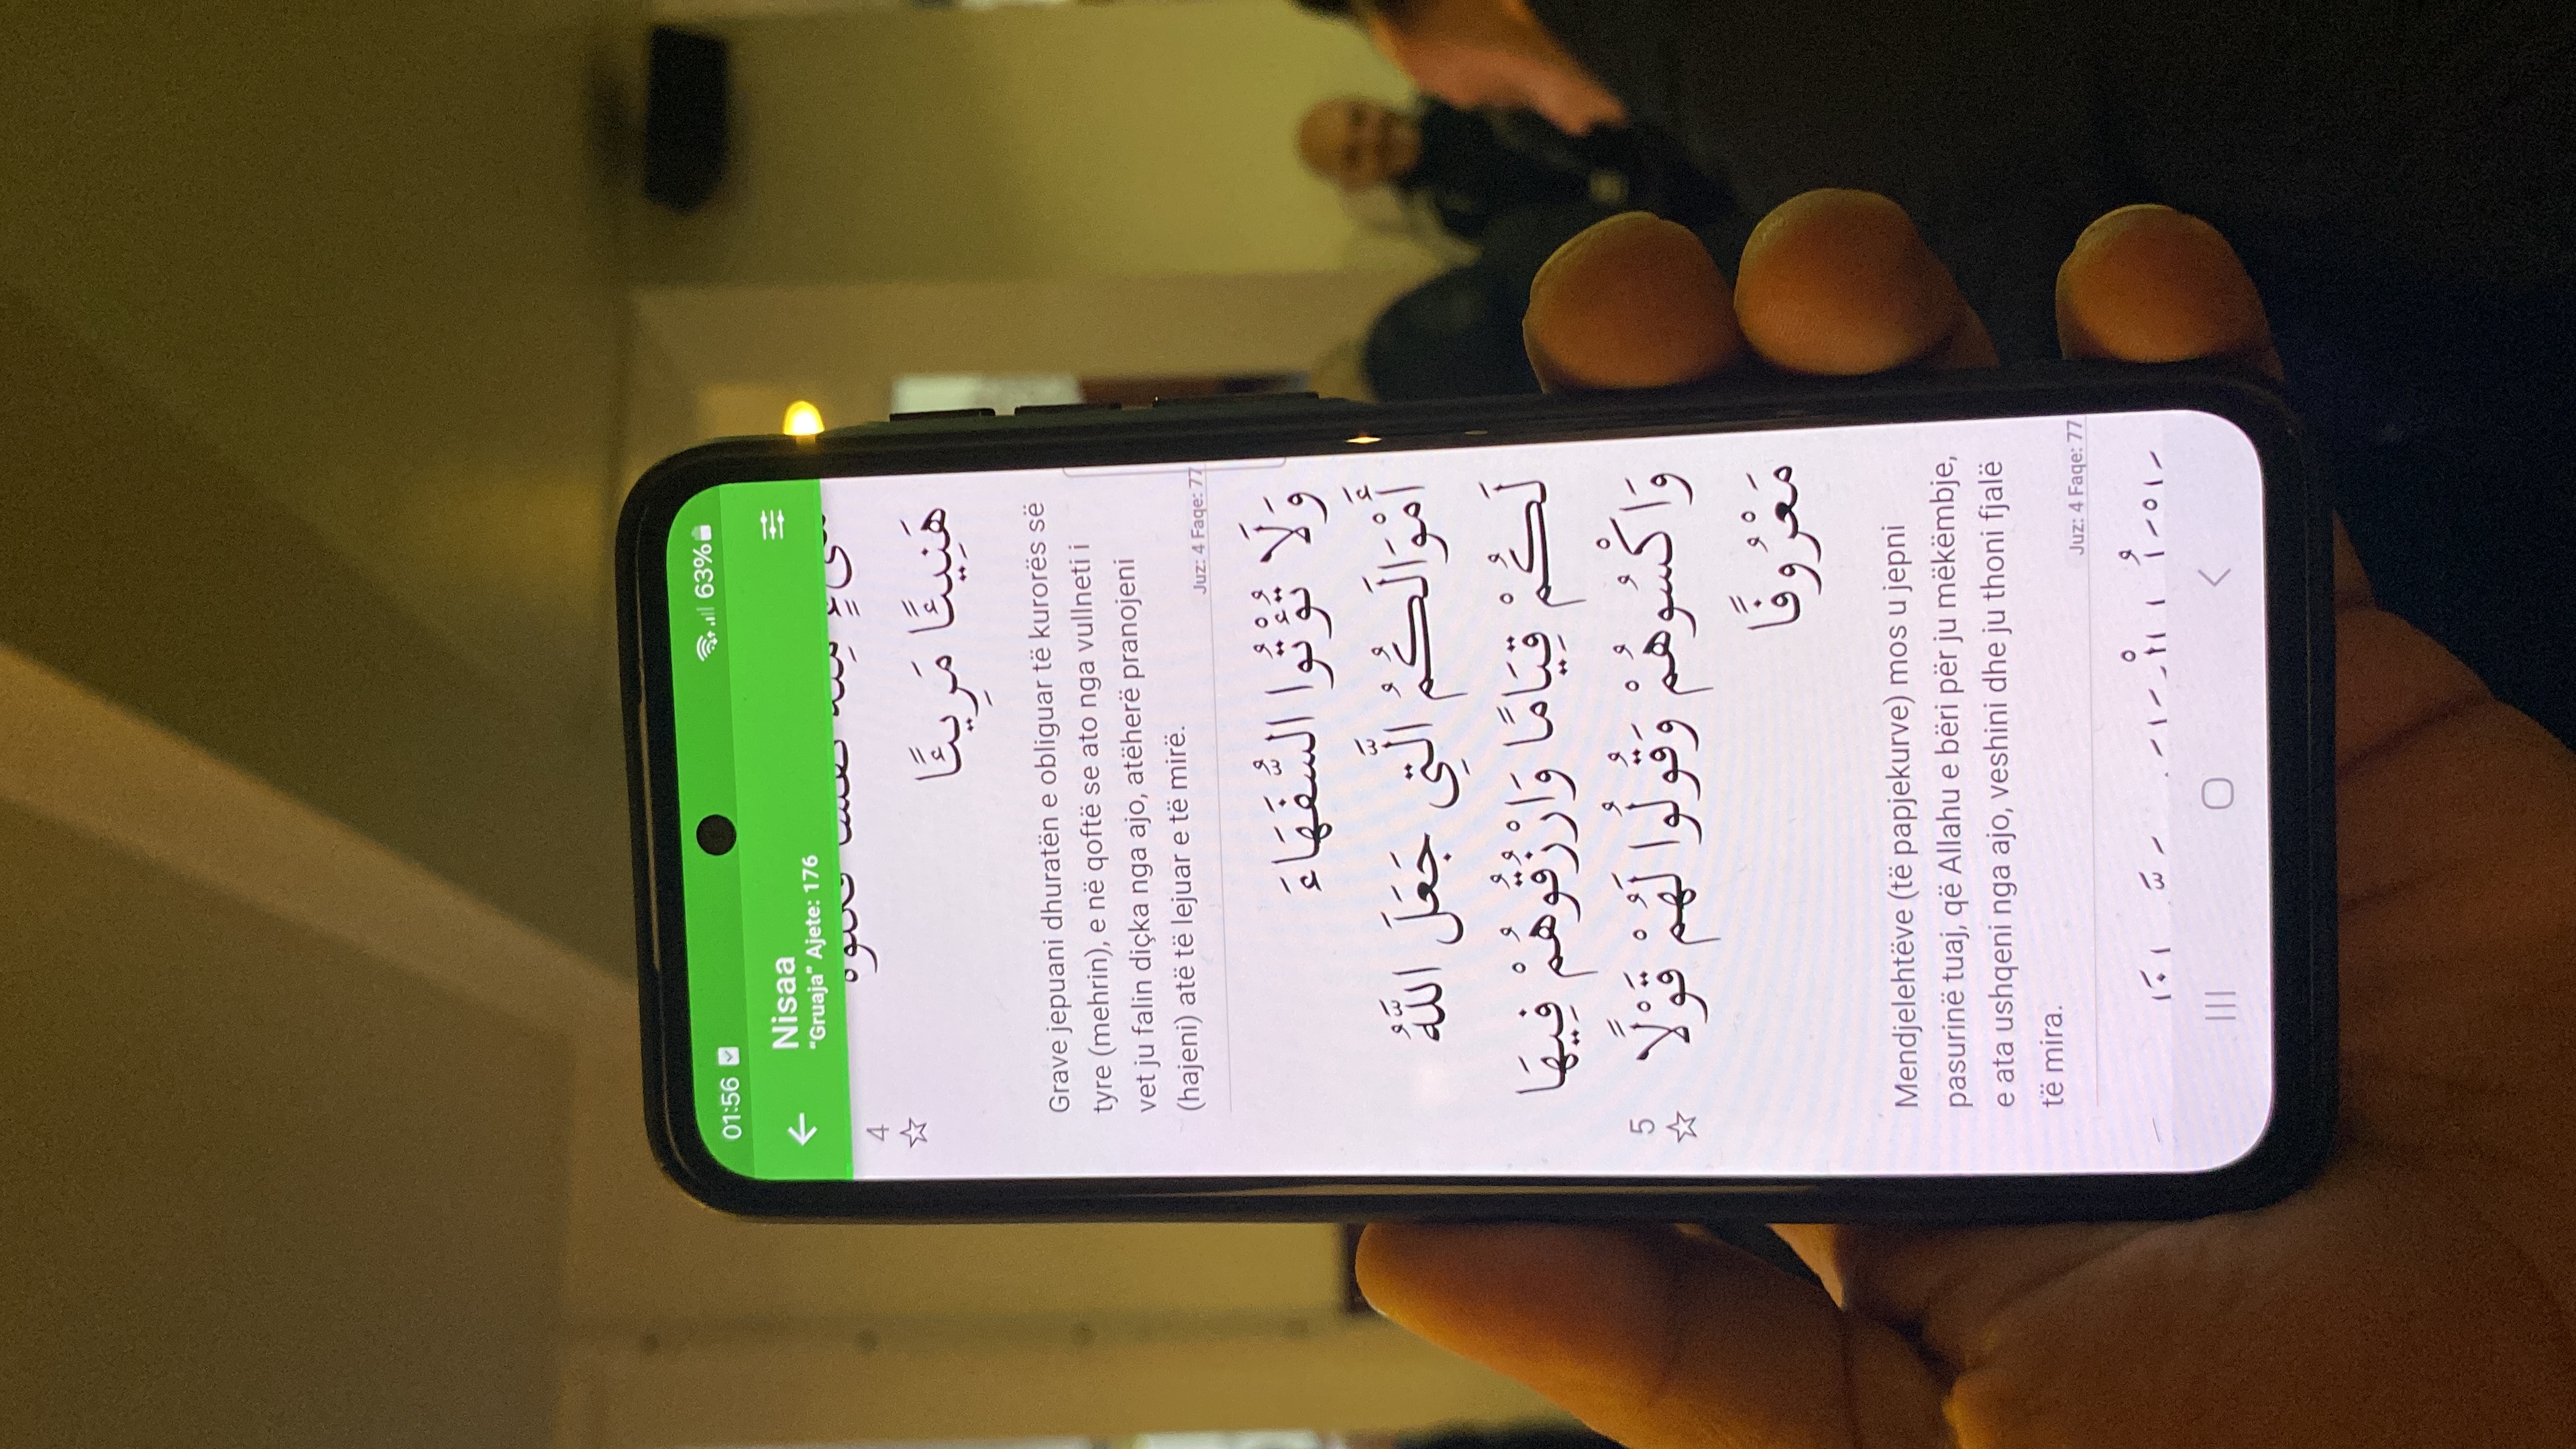 01:56 63%
Nisaa
"Gruaja" Ajete: 176
4
هَنِيٓـًٔا مَّرِيٓـًٔا
Grave jepuani dhuratën e obliguar të kurorës së
tyre (mehrin), e në qoftë se ato nga vullneti i
vet ju falin diçka nga ajo, atëherë pranojeni
(hajeni) atë të lejuar e të mirë.
Juz: 4 Faqe: 77
وَلَا تُؤْتُوا السُّفَهَاءَ
أَمْوَالَكُمُ الَّتِي جَعَلَ اللَّهُ
لَكُمْ قِيَامًا وَارْزُقُوهُمْ فِيهَا
وَاكْسُوهُمْ وَقُولُوا لَهُمْ قَوْلًا
مَعْرُوفًا
5
Mendjelehtëve (të papjekurve) mos u jepni
pasurinë tuaj, që Allahu e bëri për ju mëkëmbje,
e ata ushqeni nga ajo, veshini dhe ju thoni fjalë
të mira.
Juz: 4 Faqe: 77